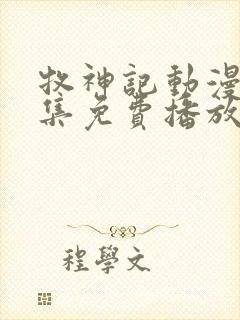 牧神記動漫
集免費播放
程學文